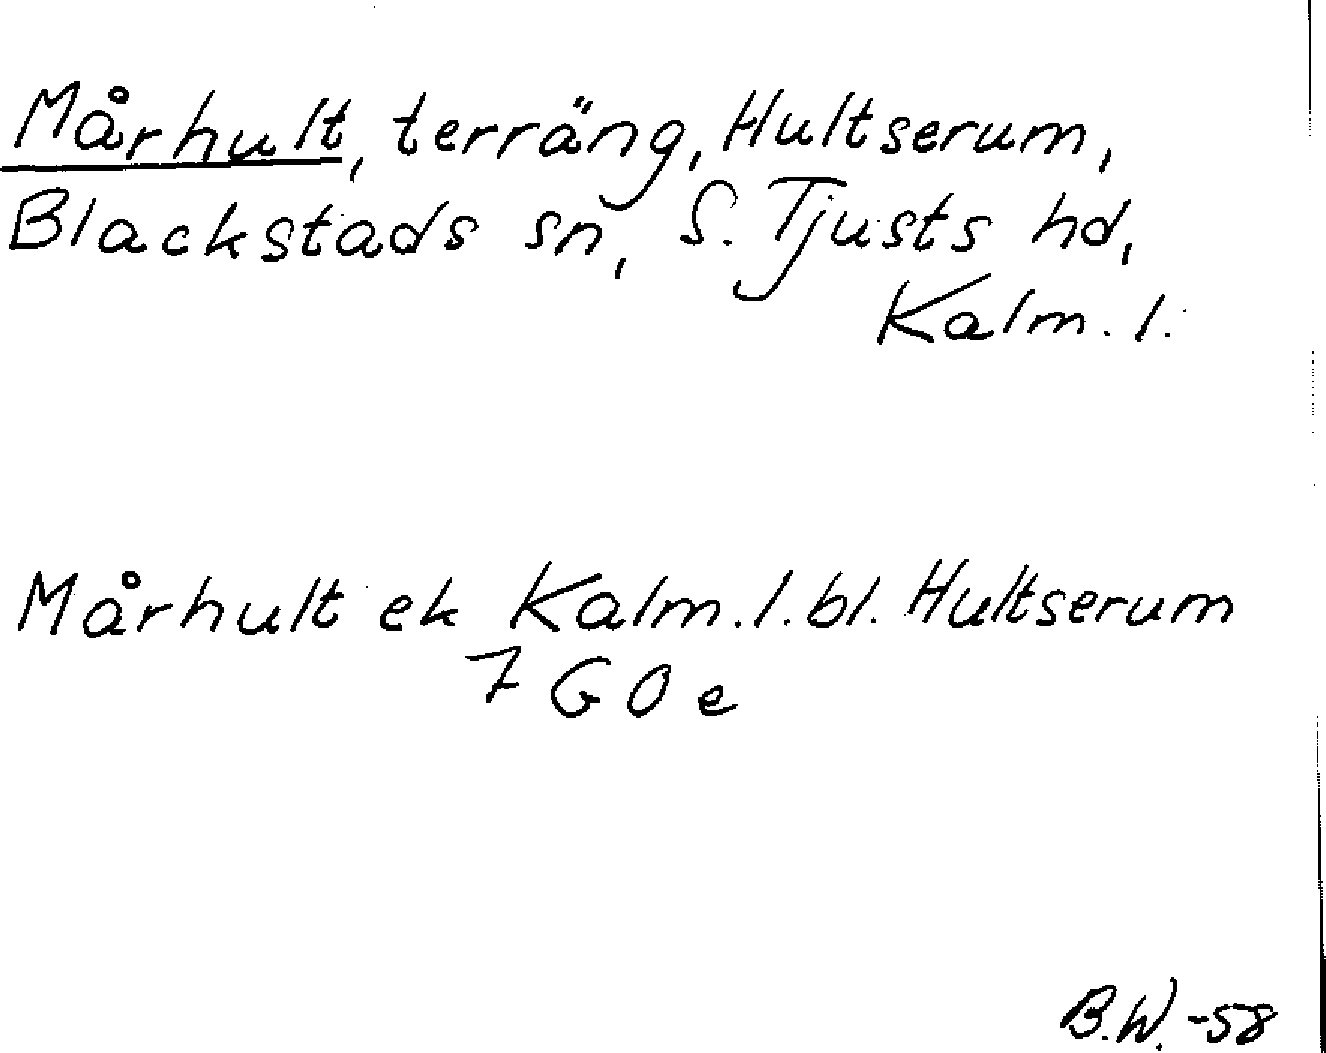 Mårhult, terräng, Hultserum,
Blackstads sn, S. Tjusts hd,
Kalm. l.
Mårhult ek Kalm. l. bl. Hultserum
7 G 0 e
B.W. -58